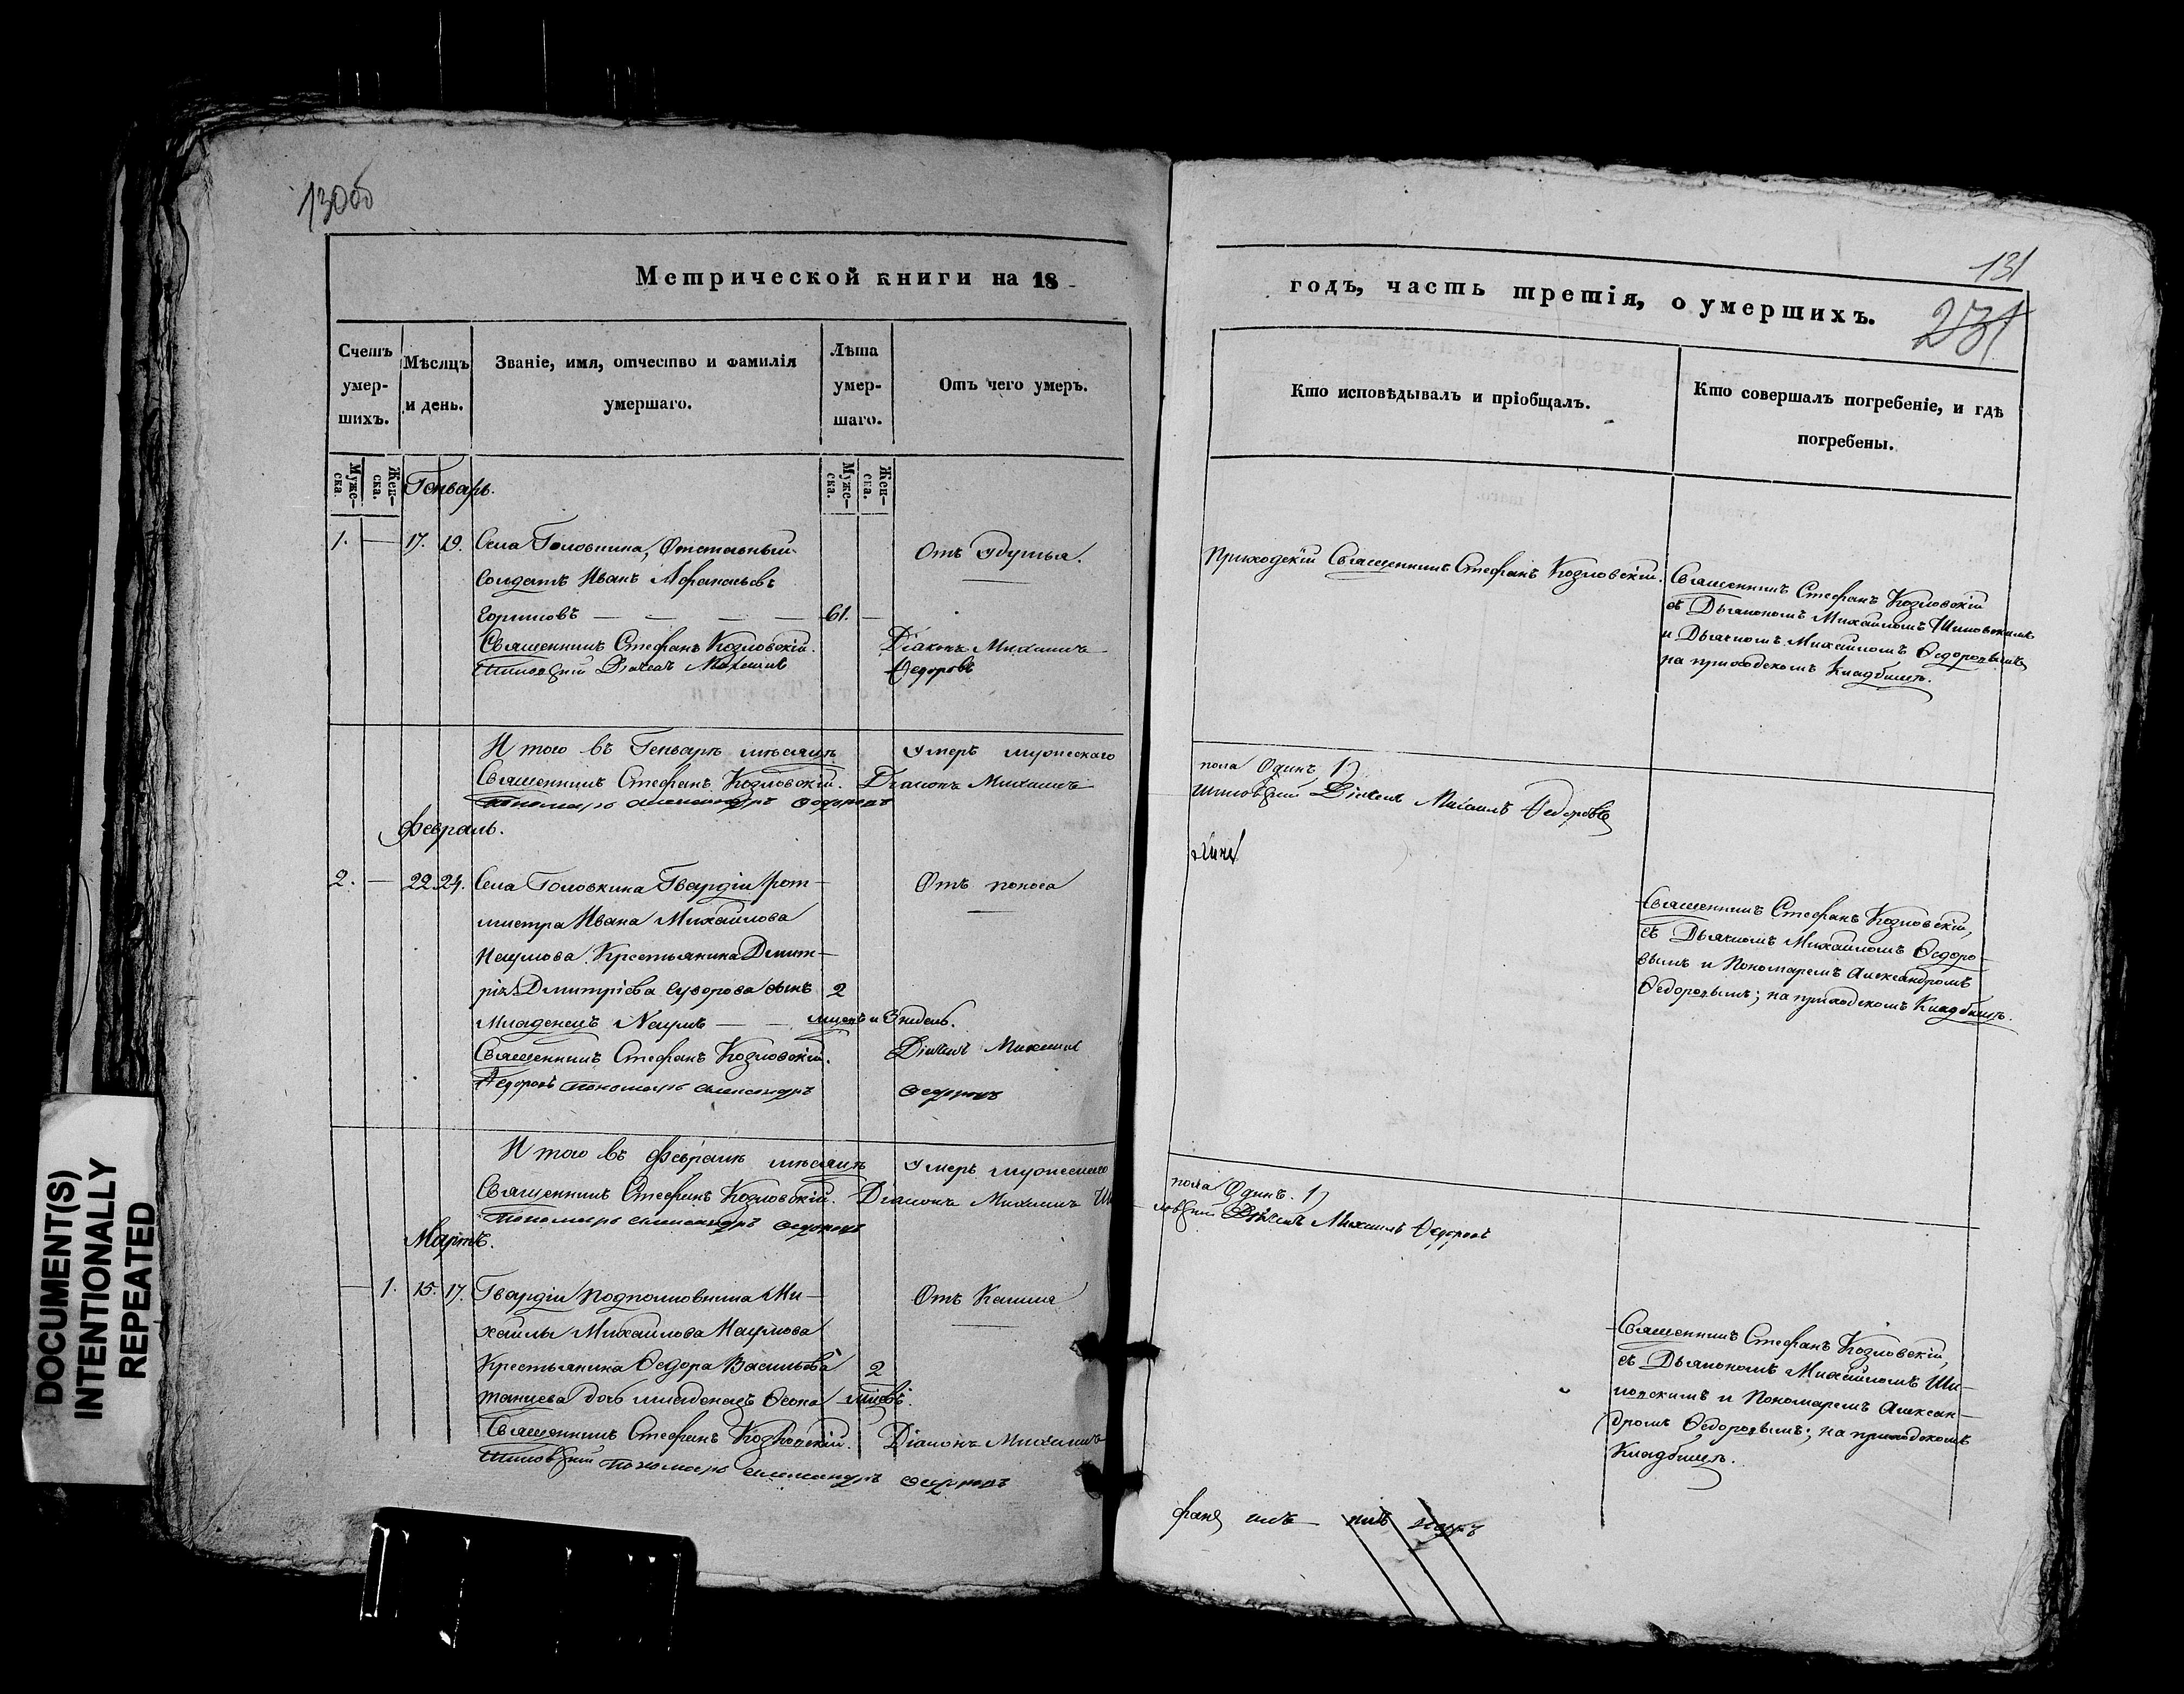 130об
Метрической книги на 18
Счетъ умершихъ.
Мѣсяцъ и день.
Званіе, имя, отчество и фамилія умершаго.
Лѣта умершаго.
Отъ чего умеръ.
Муже-
ска.
Жен-
ска.
Муже-
ска.
Жен-
ска.
Генварь.
1. — 17. 19. Села Головкина, Отставный
Солдатъ Иванъ Афанасьевъ
Горшковъ — — — — — 61. —
Отъ Удушья.
Священникъ Стефанъ Козловскій. Діаконъ Михаилъ
Шиловскій Дьячекъ Михаилъ Федоровъ
И того въ Генварѣ мѣсяцѣ Умеръ мужескаго
Священникъ Стефанъ Козловскій. Діаконъ Михаилъ
Пономарь Александръ Федоровъ
Февраль.
2. — 22. 24. Села Головкина Гвардіи рот-
мистра Ивана Михайлова
Наумова Крестьянина Дмит-
рія Дмитріева Суворова сынъ 2
Младенецъ Наумъ — — мцовъ и 3 недель.
Отъ поноса
Священникъ Стефанъ Козловскій. Дьячекъ Михаилъ
Федоровъ Пономарь Александръ Федоровъ
И того въ Февралѣ мѣсяцѣ Умеръ мужескаго
Священникъ Стефанъ Козловскій. Діаконъ Михаилъ Ши
Пономарь Александръ Федоровъ
Мартъ.
— 1. 15. 17. Гвардіи Подполковника Ми-
хайлы Михайлова Наумова
Крестьянина Ѳедора Васильева 2
дочь младенецъ мцовъ.
Отъ Кашля
Священникъ Стефанъ Козловскій. Діаконъ Михаилъ
Шиловскій Пономарь Александръ Федоровъ
131
231
годъ, часть третія, о умершихъ.
Кто исповѣдывалъ и пріобщалъ.
Кто совершалъ погребеніе, и гдѣ
погребены.
Приходскій Священникъ Стефанъ Козловскій.
Священникъ Стефанъ Козловскій
съ Дьякономъ Михаиломъ Шиловскимъ
и Дьячкомъ Михаиломъ Ѳедоровымъ
на приходскомъ Кладбищѣ.
пола Одинъ 1)
Шиловскій Дьячекъ Михаилъ Федоровъ
Священникъ Стефанъ Козловскій,
съ Дьячкомъ Михаиломъ Ѳедоро-
вымъ и Пономаремъ Александромъ
Ѳедоровымъ; на приходскомъ Кладбищѣ.
пола Одинъ. 1)
ловскій Дьячекъ Михаилъ Федоровъ
Священникъ Стефанъ Козловскій,
съ Дьякономъ Михаиломъ Ши-
ловскимъ и Пономаремъ Алексан-
дромъ Ѳедоровымъ; на приходскомъ
Кладбищѣ.
DOCUMENT(S)
INTENTIONALLY
REPEATED